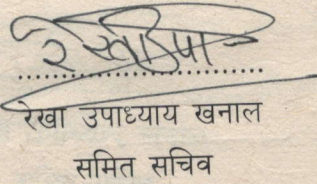 रेखा उपाध्याय खनाल
समित सचिव